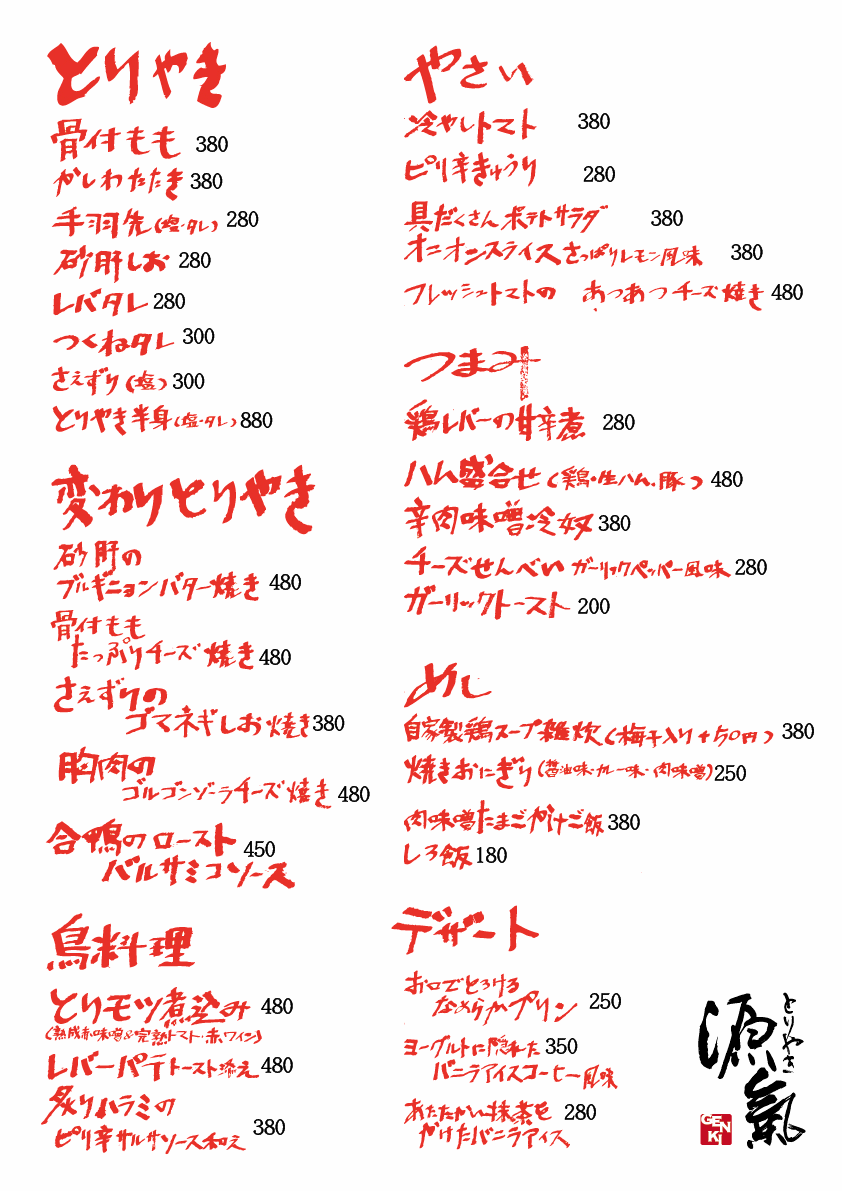 とりやき
骨付もも 380
かしわたたき 380
手羽先(塩・タレ) 280
砂肝しお 280
レバタレ 280
つくねタレ 300
さえずり(塩) 300
とりやき半身(塩・タレ) 880
変わりとりやき
砂肝の
ブルギニョンバター焼き 480
骨付もも
たっぷりチーズ焼き 480
さえずりの
ゴマネギしお焼き 380
胸肉の
ゴルゴンゾーラチーズ焼き 480
合鴨のロースト 450
バルサミコソース
鳥料理
とりモツ煮込み 480
(熟成赤味噌&完熟トマト・赤ワイン)
レバーパテトースト添え 480
炙りハラミの
ピリ辛サルサソース和え 380
やさい
冷やしトマト 380
ピリ辛きゅうり 280
具だくさんポテトサラダ 380
オニオンスライスさっぱりレモン風味 380
フレッシュトマトの あつあつチーズ焼き 480
つまみ
鶏レバーの甘辛煮 280
ハム盛合せ(鶏・生ハム・豚) 480
辛肉味噌冷奴 380
チーズせんべいガーリックペッパー風味 280
ガーリックトースト 200
めし
自家製鶏スープ雑炊(梅干入り+50円) 380
焼きおにぎり(醤油味・カレー味・肉味噌) 250
肉味噌たまごかけご飯 380
しろ飯 180
デザート
お口でとろける
なめらかプリン 250
ヨーグルトに隠れた 350
バニラアイスコーヒー風味
あたたかい抹茶を 280
かけたバニラアイス
とりやき
源氣
GEN
KI